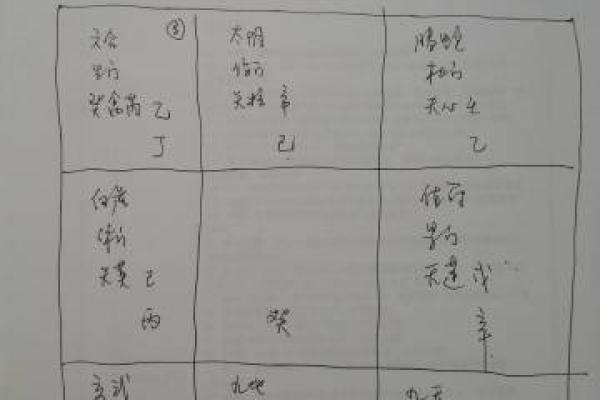 六合
生门
癸 禽芮 乙
丁
太阴
伤门
天柱 辛
己
腾蛇
杜门
天心 壬
乙
白虎
休门
天英 己
丙
癸
值符
景门
天蓬 戊
辛
玄武
九地
九天